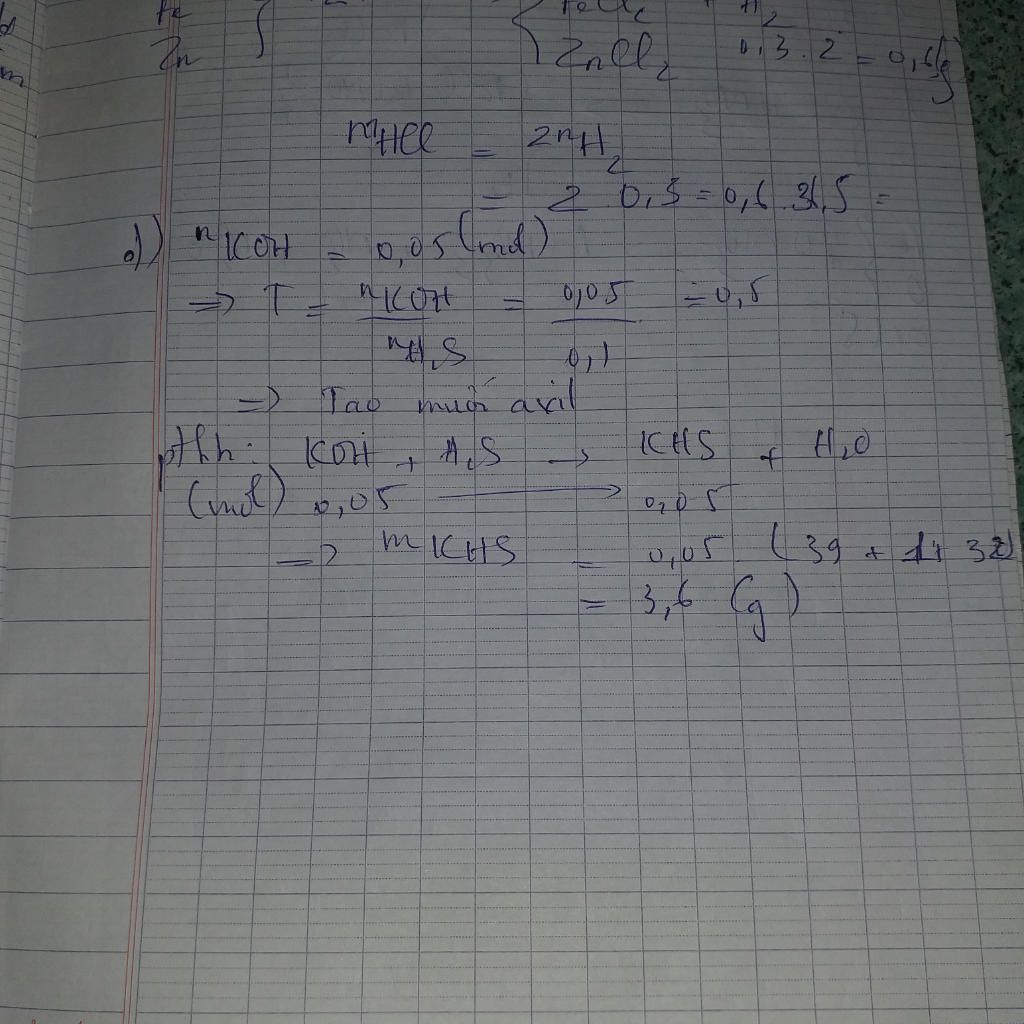 Fe } { FeCl2 + H2
Zn ZnCl2 0,3.2 = 0,6(g)
nHCl = 2nH2
= 2 0,3 = 0,6.36,5 =
d) nKOH = 0,05 (mol)
=> T = nKOH / nH2S = 0,05 / 0,1 = 0,5
=> Tạo muối axit
pthh: KOH + H2S → KHS + H2O
(mol) 0,05 → 0,05
=> mKHS = 0,05 (39 + 1+ 32)
= 3,6 (g)